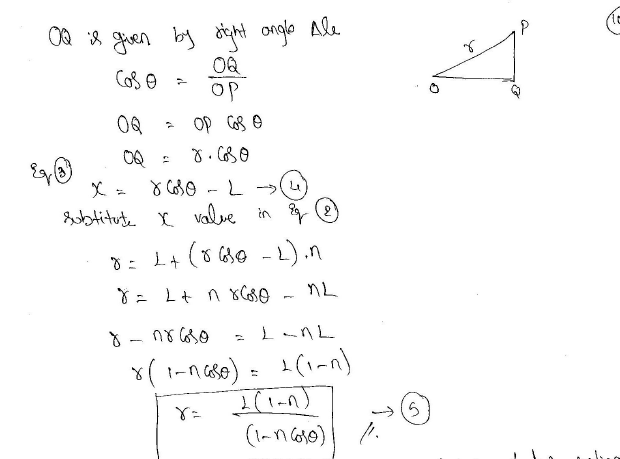 OQ is given by right angle Δle
Cos θ = OQ / OP
OQ = OP Cos θ
OQ = r. Cos θ
Eq (3)
x = r Cos θ - L → (4)
substitute x value in Eq (2)
r = L + (r Cos θ - L).n
r = L + n r Cos θ - nL
r - nr Cos θ = L - nL
r(1-n cos θ) = L(1-n)
r = L(1-n) / (1-n Cos θ) → (5)
P
r
O
Q